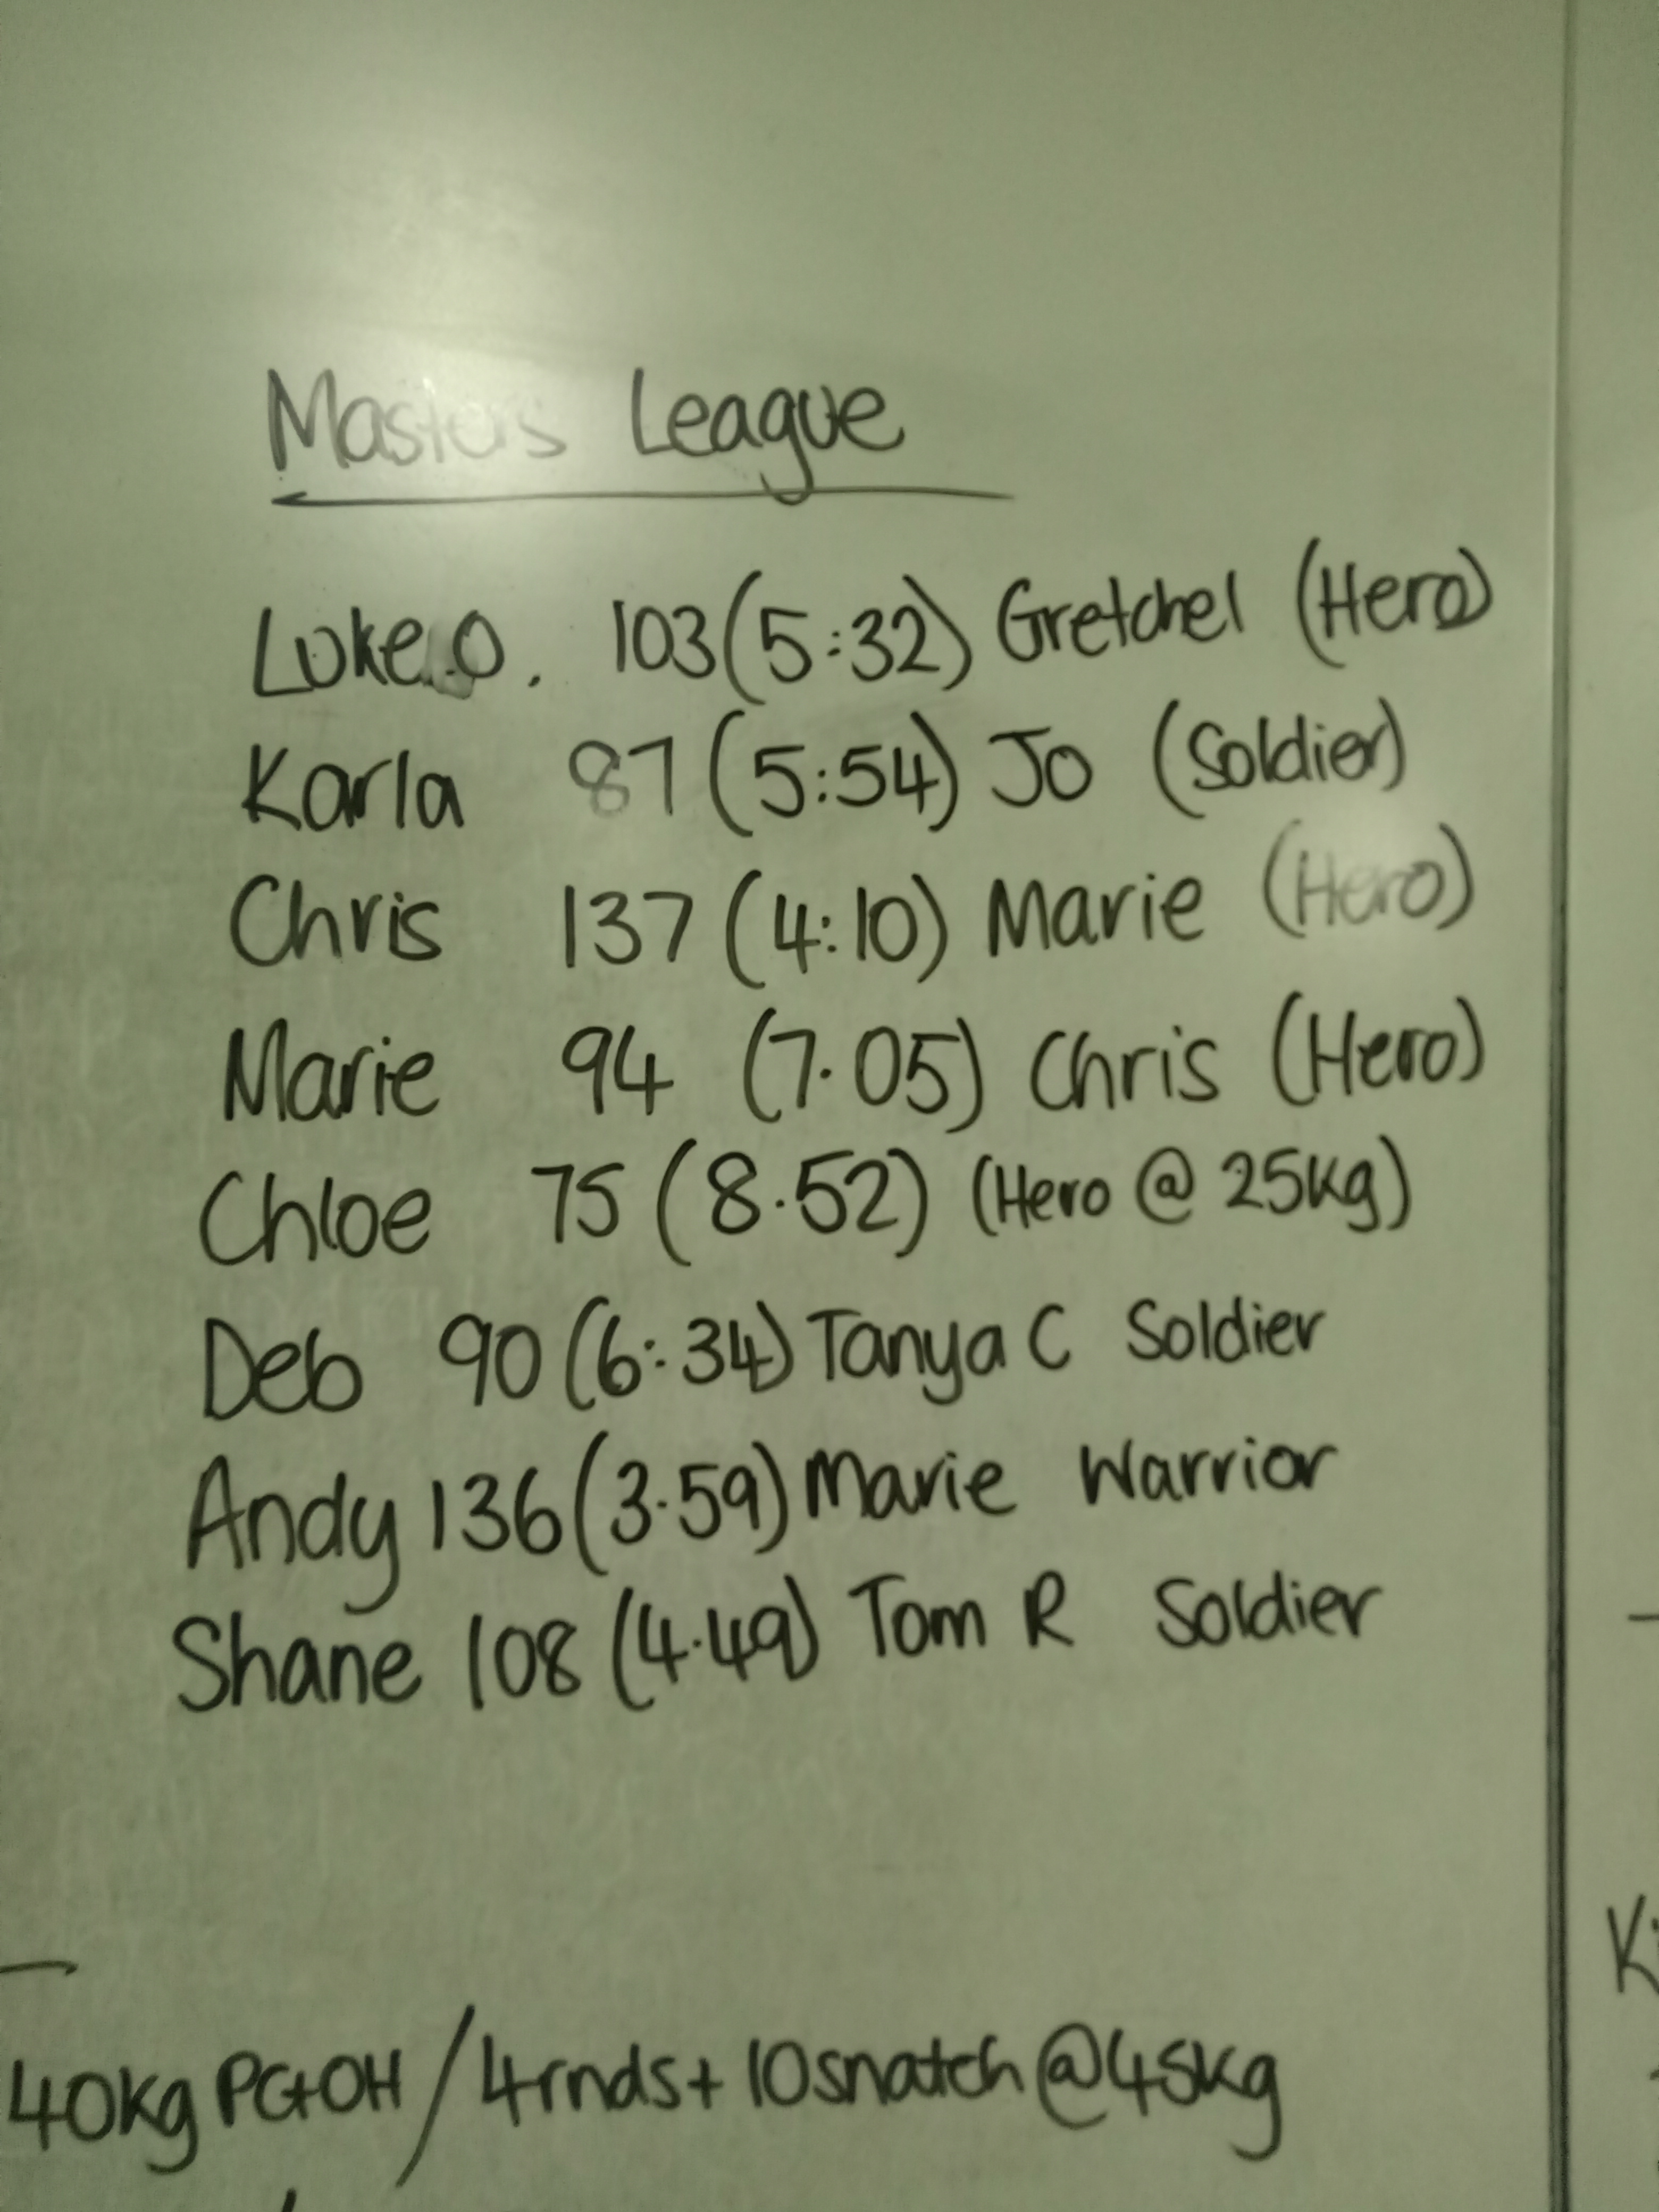 Masters League
Luke.O. 103 (5:32) Gretchel (Hero)
Karla 87 (5:54) Jo (Soldier)
Chris 137 (4:10) Marie (Hero)
Marie 94 (7.05) Chris (Hero)
Chloe 75 (8.52) (Hero @ 25kg)
Deb 90 (6:34) Tanya C Soldier
Andy 136 (3.59) Marie Warrior
Shane 108 (4.49) Tom R Soldier
Ki
40kg PC+OH / 4rnds + 10 snatch @ 45kg